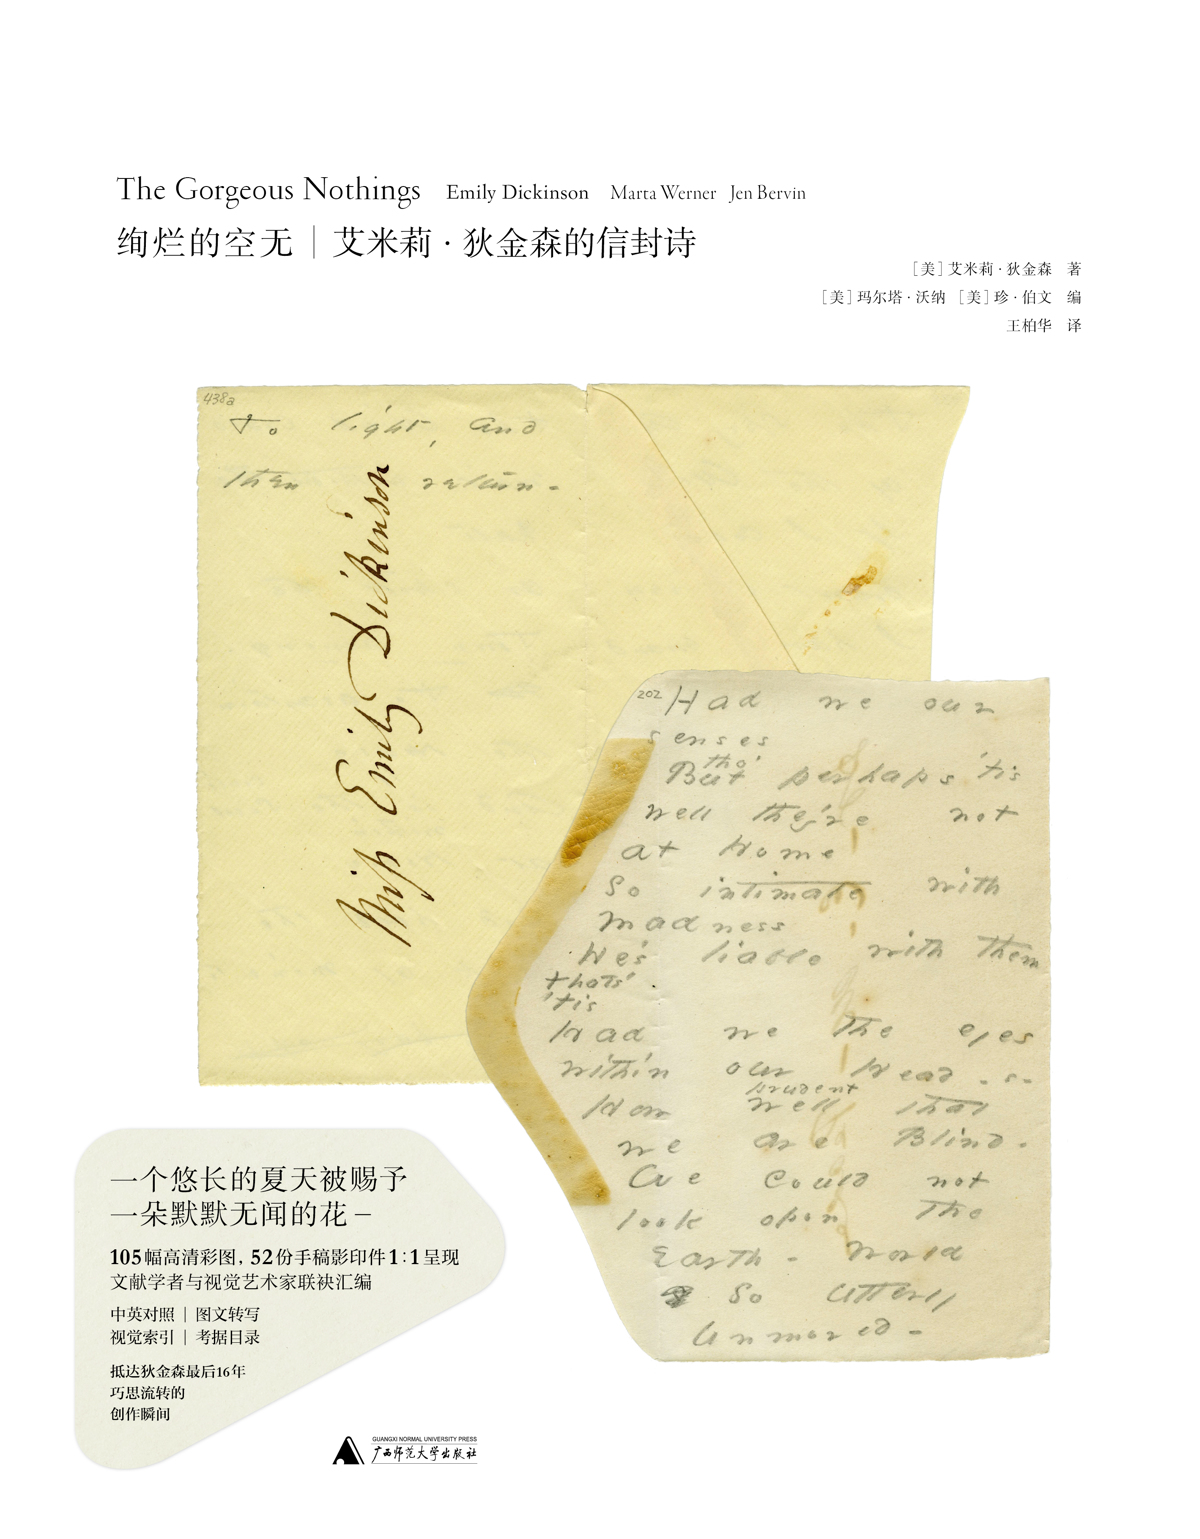 The Gorgeous Nothings Emily Dickinson Marta Werner Jen Bervin
绚烂的空无｜艾米莉·狄金森的信封诗
［美］艾米莉·狄金森 著
［美］玛尔塔·沃纳 ［美］珍·伯文 编
王柏华 译
438a
To light, and
then return -
Miss Emily Dickinson
202
Had we our
senses
tho'
But perhaps 'tis
well they're not
at Home
So intimate with
Madness
He's liable with them
that's'
'tis
Had we the eyes
within our Head - s -
prudent
How well that
we are Blind -
We could not
look opon the
Earth - World
So utterly
Unmoved -
一个悠长的夏天被赐予
一朵默默无闻的花－
105幅高清彩图，52份手稿影印件1:1呈现
文献学者与视觉艺术家联袂汇编
中英对照｜图文转写
视觉索引｜考据目录
抵达狄金森最后16年
巧思流转的
创作瞬间
GUANGXI NORMAL UNIVERSITY PRESS
广西师范大学出版社